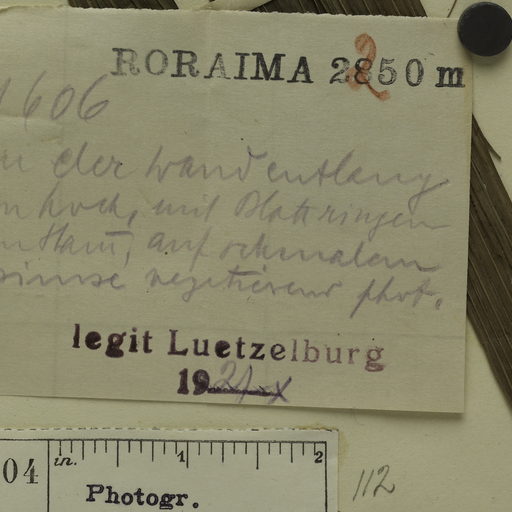 RORAIMA 2850 m
2
1606
der Wand entlang
hoch, mit Blattringen
Stam, auf schmalem
simse vegetierend phot.
legit Luetzelburg
1927 X
04 in. 1 2
Photogr.
112